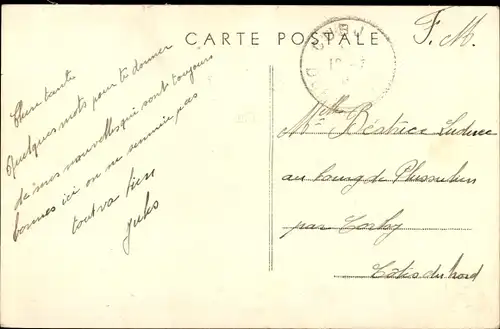 CARTE POSTALE
F. M.
Chère tante
Quelques mots pour te donner
de mes nouvelles qui sont toujours
bonnes ici on ne s'ennuie pas
tout va bien
Jules
Mlle Béatrice Leduc
au bourg de Plussulien
par Corlay
Côtes du Nord